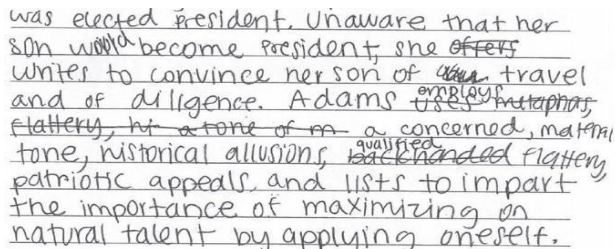 was elected president. Unaware that her
son would become president, she offers
writes to convince her son of travel
and of diligence. Adams uses employs metaphors,
flattery, hi a tone of m a concerned, maternal
tone, historical allusions, backhanded qualified flattery,
patriotic appeals, and lists to impart
the importance of maximizing on
natural talent by applying oneself.